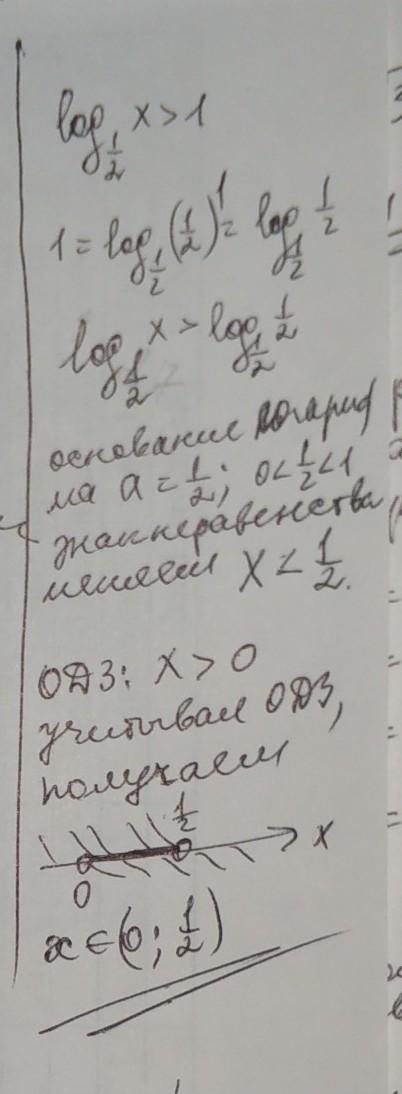 log_{1/2} x > 1
1 = log_{1/2} (1/2)^1 = log_{1/2} 1/2
log_{1/2} x > log_{1/2} 1/2
основание логариф
ма a = 1/2; 0 < 1/2 < 1
знак неравенства
меняем x < 1/2.
ОДЗ: x > 0
учитывая ОДЗ,
получаем
1/2
x
0
x ∈ (0; 1/2)